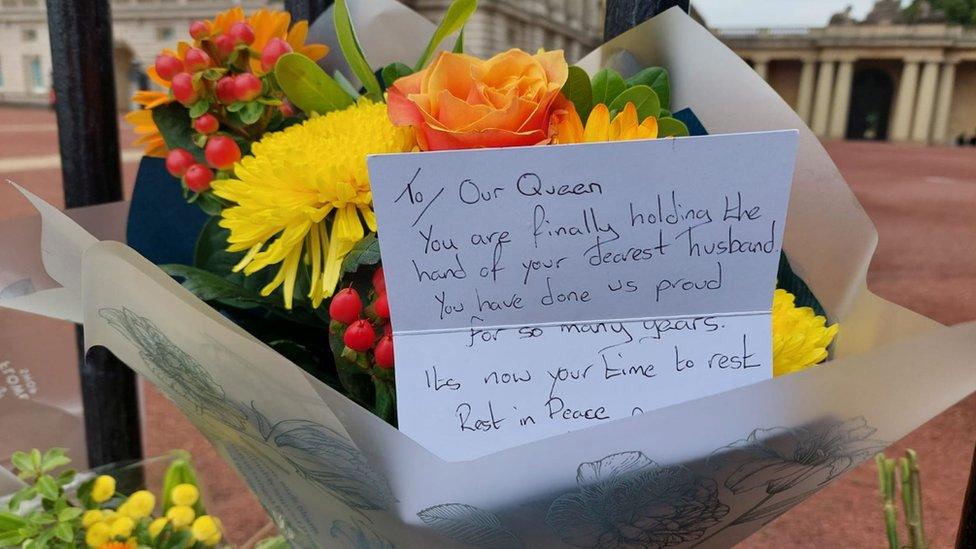 To/ Our Queen
You are finally holding the
hand of your dearest husband
You have done us proud
for so many years.
Its now your time to rest
Rest in Peace